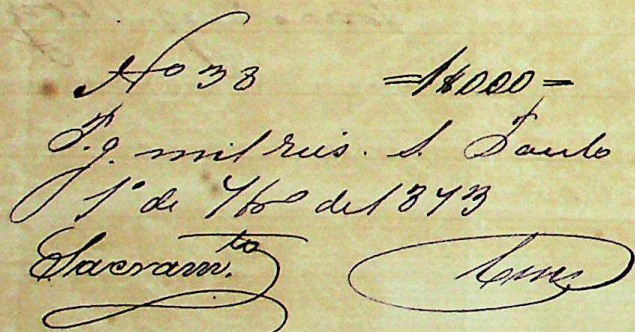 Nº 38 =1$000=
Pg. mil reis. S. Paulo
1º de 7bro de 1873
Sacramto